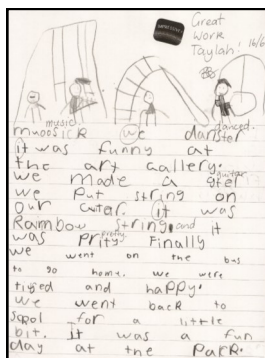 Great
Work
Taylah! 16/6
music danced.
moosick we danster
it was funny at
the art gallery.
guitar
We made a gter
we put string on
our guter. it was
Rainbow string, and it
pretty
was prity Finally
we went on the bus
to go home. we were
tiyed and happy.
we went back to
sool for a little
bit. It was a fun
day at the park.